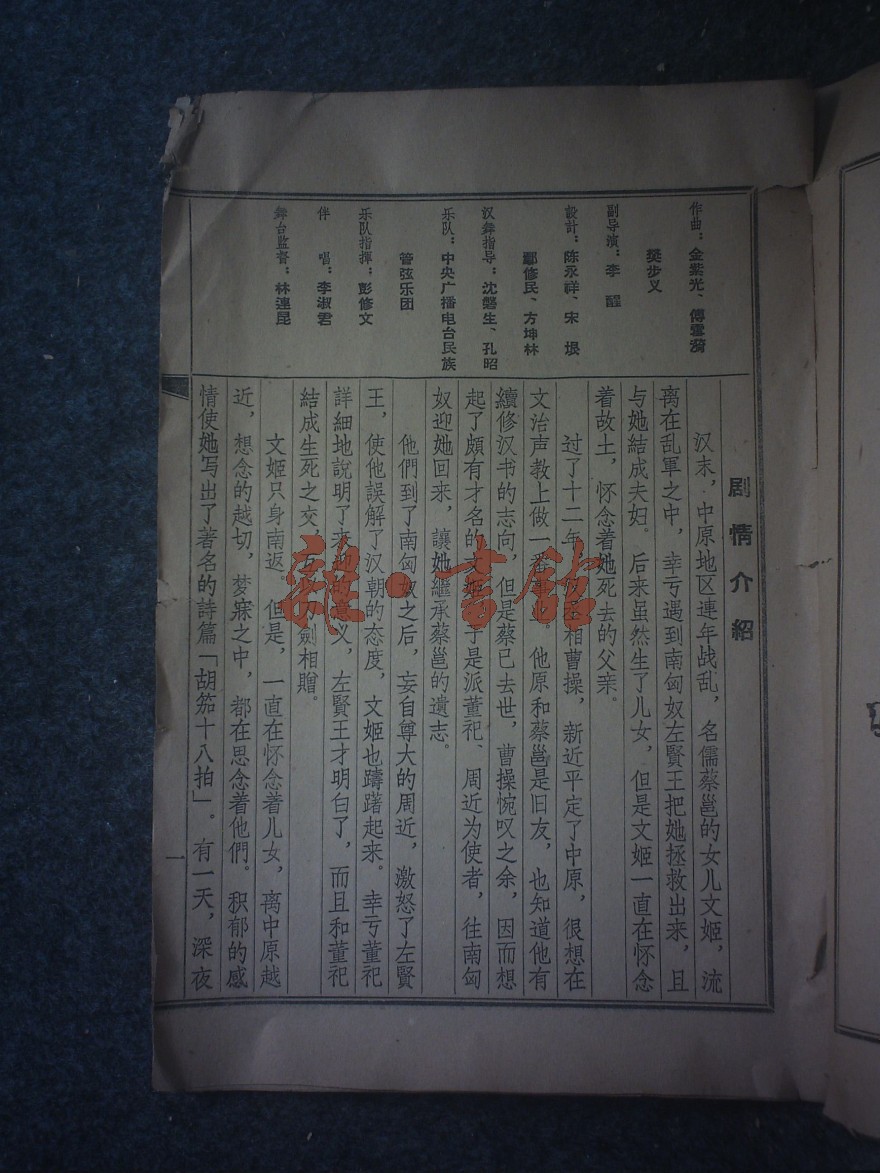 作曲：金紫光、傅雪漪
樊步义
副导演：李　醒
設計：陈永祥、宋　垠
鄢修民、方坤林
汉舞指导：沈磐生、孔昭
乐队：中央广播电台民族
管弦乐团
乐队指揮：彭修文
伴　唱：李淑君
舞台监督：林連昆
剧情介紹
汉末，中原地区連年战乱，名儒蔡邕的女儿文姬，流
离在乱軍之中，幸亏遇到南匈奴左賢王把她拯救出来，且
与她結成夫妇。后来虽然生了儿女，但是文姬一直在怀念
着故土，怀念着她死去的父亲。
过了十二年，相曹操，新近平定了中原，很想在
文治声教上做一番事。他原和蔡邕是旧友，也知道他有
續修汉书的志向，但是蔡已去世，曹操惋叹之余，因而想
起了頗有才名的文姬，于是派董祀、周近为使者，往南匈
奴迎她回来，讓她繼承蔡邕的遺志。
他們到了南匈奴之后，妄自尊大的周近，激怒了左賢
王，使他誤解了汉朝的态度，文姬也躊躇起来。幸亏董祀
詳細地說明了来的意义，左賢王才明白了，而且和董祀
結成生死之交，互劍相贈。
文姬只身南返，但是，一直在怀念着儿女，离中原越
近，想念的越切，梦寐之中，都在思念着他們。积郁的感
情使她写出了著名的詩篇「胡笳十八拍」。有一天，深夜
一
雜·書館